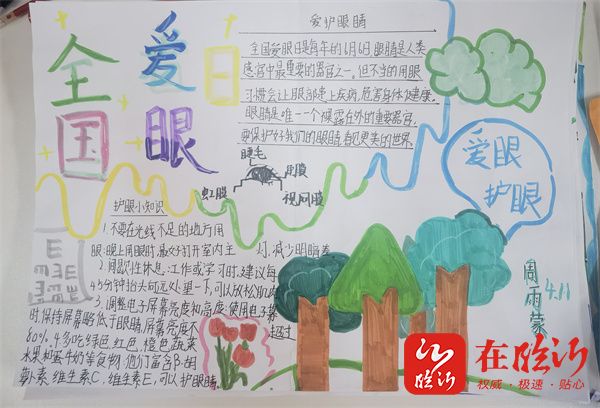 全国
爱眼日
爱护眼睛
全国爱眼日是每年的6月6日眼睛是人类
感官中最重要的器官之一。但不当的用眼
习惯会让眼部患上疾病,危害身体健康。
眼睛是唯一一个暴露在外的重要器官。
要保护好我们的眼睛,看见更美的世界
睫毛
虹膜
视网膜
爱眼
护眼
护眼小知识
1.不要在光线不足的地方用
眼.晚上用眼时,最好打开室内主灯,减少明暗差
2.间歇性休息:工作或学习时,建议每
45分钟抬头向远处望一下,可以放松肌肉
3.调整电子屏幕亮度和高度:使用电子幕
时保持屏幕略低于眼睛,屏幕亮度不超过
80%.4.多吃绿色,红色,橙色蔬菜
水果和蛋牛奶等食物.他们富含β-胡
萝卜素.维生素C,维生素E,可以护眼睛.
E
周雨蒙
4.11
在临沂
权威·极速·贴心